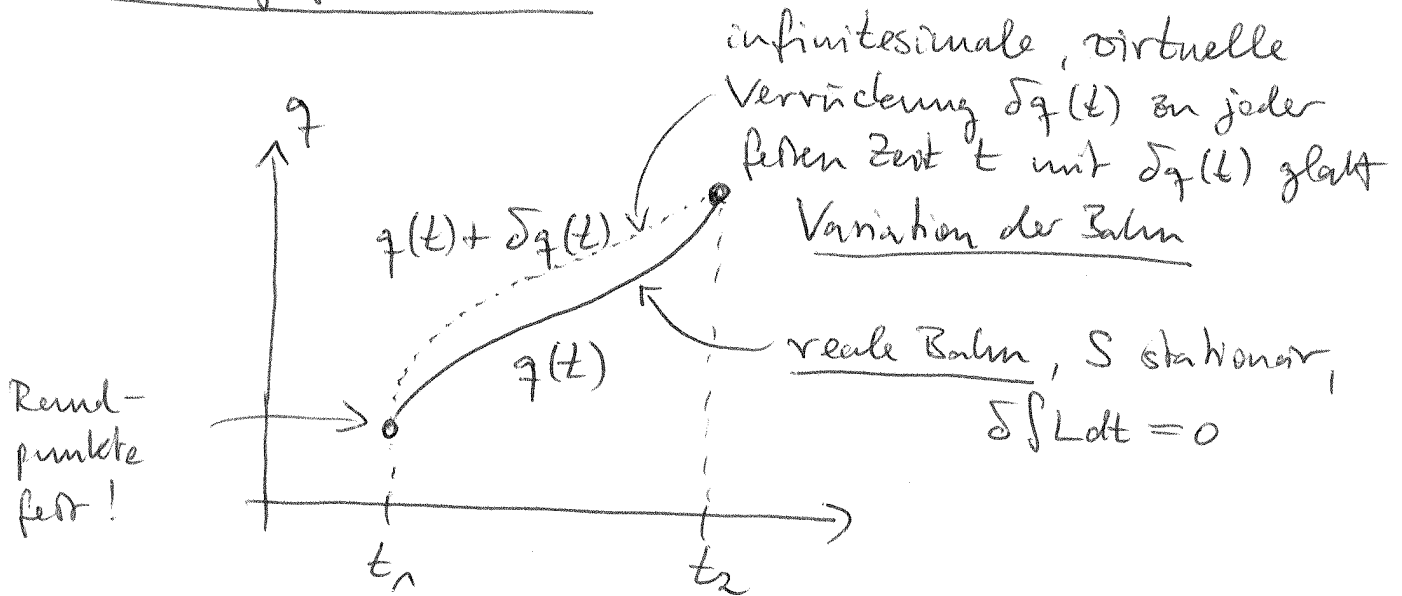 infinitesimale, virtuelle
Verrückung δq(t) zu jeder
festen Zeit t mit δq(t) glatt
Variation der Bahn
q
q(t) + δq(t)
q(t)
reale Bahn, S stationär,
δ∫Ldt = 0
Rand-
punkte
fest!
t₁
t₂